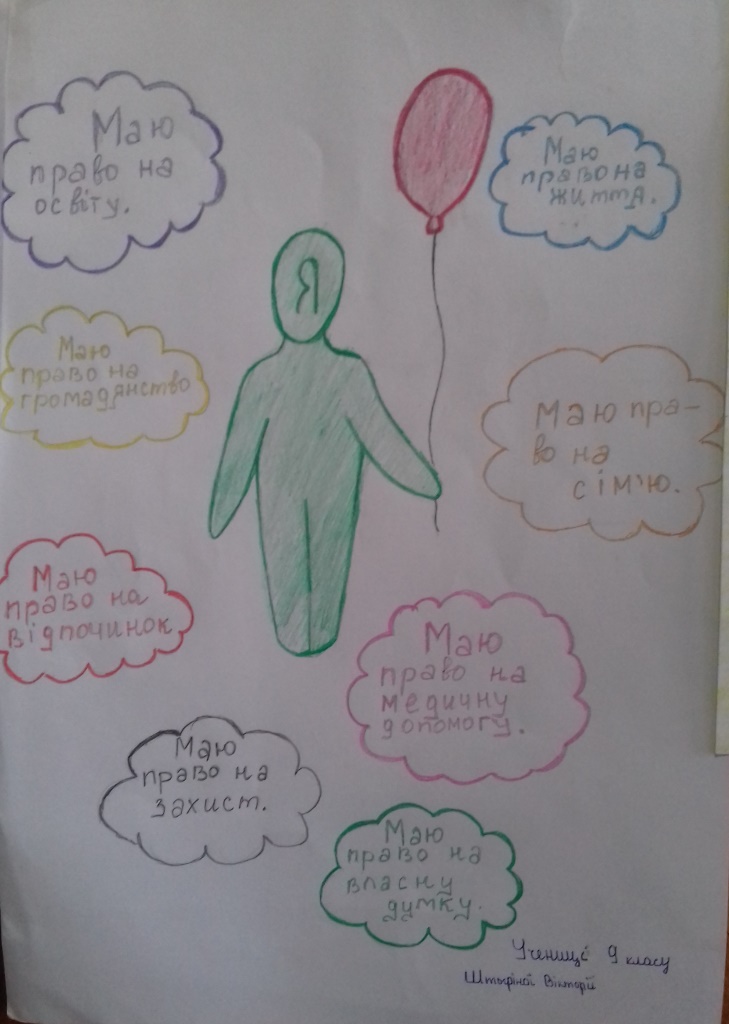 Маю
право на
освіту.
Маю
право на
життя.
Я
Маю
право на
громадянство
Маю пра-
во на
сім'ю.
Маю
право на
відпочинок
Маю
право на
медичну
допомогу.
Маю
право на
захист.
Маю
право на
власну
думку.
Учениці 9 класу
Вікторії